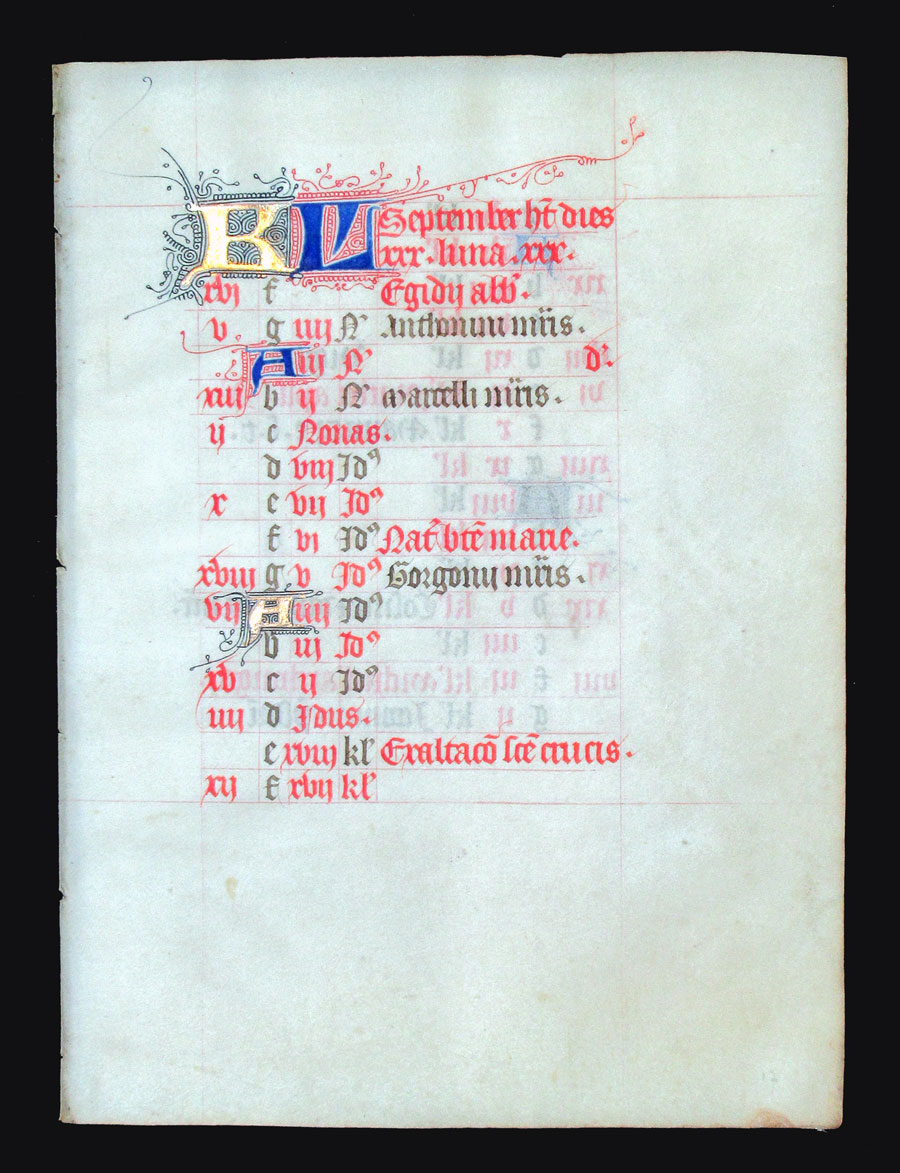 KL September ht̄ dies
xxx . luna . xxx .
xvi f Egidij abb̄.
v g iiij N' Anthonini mr̄is .
A iij N' d'.
xiij b ij N' Marcelli mr̄is .
ij c Nonas .
d viij Idꝰ
x e vij Idꝰ
f vi Idꝰ Nat̄ bt̄e marie .
xviij g v Idꝰ Gorgonij mr̄is .
vij A iiij Idꝰ
b iij Idꝰ
xv c ij Idꝰ
iiij d Idus .
e xviij kl' Exaltacō sc̄e crucis .
xij f xvij kl'